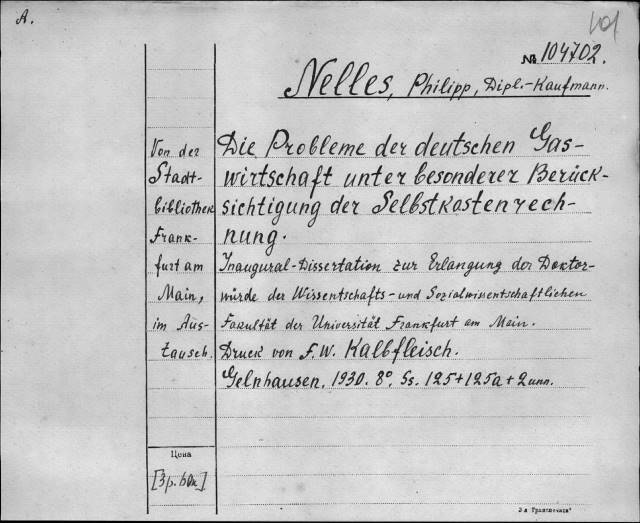 A.
101
№ 104702.
Nelles, Philipp, Dipl.-Kaufmann.
Von der
Stadt-
bibliothek
Frank-
furt am
Main,
im Aus-
tausch.
Die Probleme der deutschen Gas-
wirtschaft unter besonderer Berück-
sichtigung der Selbstkostenrech-
nung.
Inaugural-Dissertation zur Erlangung der Doktor-
würde der Wissentschafts- und Sozialwissentschaftlichen
Fakultät der Universität Frankfurt am Main.
Druck von F. W. Kalbfleisch.
Gelnhausen, 1930. 8°. Ss. 125+125a+2unn.
Цена
[3р. 60к]